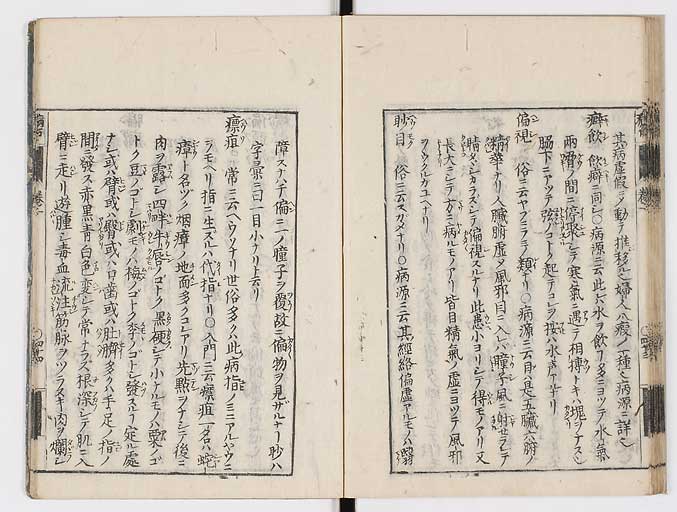 其病虚假ヲ動テ推移ル也婦人八瘕ノ一種也病源ニ詳也
癖飲 飲癖ニ同シ〇病源ニ云此水ヲ飲コ多ニヨツテ水氣
両脇ノ間ニ停聚シテ寒氣ニ遇テ相搏トキハ塊ヲナス也
脇下ニアツテ弦ノゴトク起テコレヲ按ハ水声アナリ
偏視 俗ニ云ヤブニラミノ類ナリ〇病源ニ云目ハ是五臓六腑ノ
精華ナリ人臓腑虚〆風邪目ニ入レバ瞳子風ニ射セラレテ
精タヾシカラズシテ偏視スルナリ此患小ヨリシテ得モノアリ又
長大ニシテ方ニ病ルモノアリ皆目精氣ノ虚ニヨツテ風邪
ヲウクルガユヘナリ
眇目 俗ニ云スガメナリ〇病源ニ云其經絡偏虚アルモノハ翳
障スナハチ偏ニ一ノ瞳子ヲ覆故ニ偏物ヲ見ザルナリ眇ハ
字彙ニ曰一目小ナリト云リ
瘭疽 常ニ云ヘウソナリ世俗多クハ此病指ノミニアルヤウニ
ヲモヘリ指ニ生ズルハ代指ナリ〇入門ニ云瘭疽一名ハ蛇
瘴ト名ヅク烟瘴ノ地面多クコレアリ先點ヲナシテ後ニ
肉ヲ露シ四畔牛唇ノゴトク黒硬シテ小ナルモノハ粟ノゴ
トク豆ノゴトシ劇モノハ梅ノゴトク李ノゴトシ發スルニ定ル處
ナシ或ハ臂或ハ臀或ハ口齒或ハ肚臍多クハ手足ノ指ノ
間ニ發ス赤黒青白色変シテ常ナラズ根深シテ肌ニ入
臂ニ走リ遊腫シ毒血流注筋脉ヲツラヌキ肉ヲ爛シ